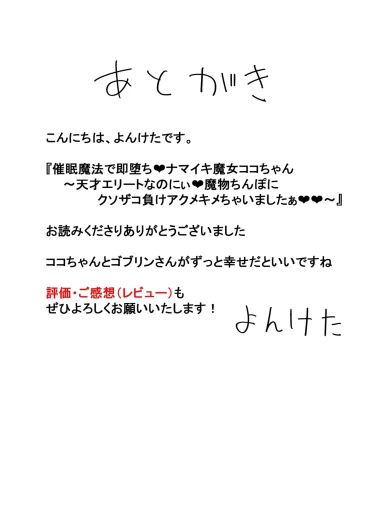 あとがき
こんにちは、よんけたです。
『催眠魔法で即堕ち❤ナマイキ魔女ココちゃん
～天才エリートなのにぃ❤魔物ちんぽに
クソザコ負けアクメキメちゃいましたぁ❤❤～』
お読みくださりありがとうございました
ココちゃんとゴブリンさんがずっと幸せだといいですね
評価・ご感想（レビュー）も
ぜひよろしくお願いいたします！
よんけた